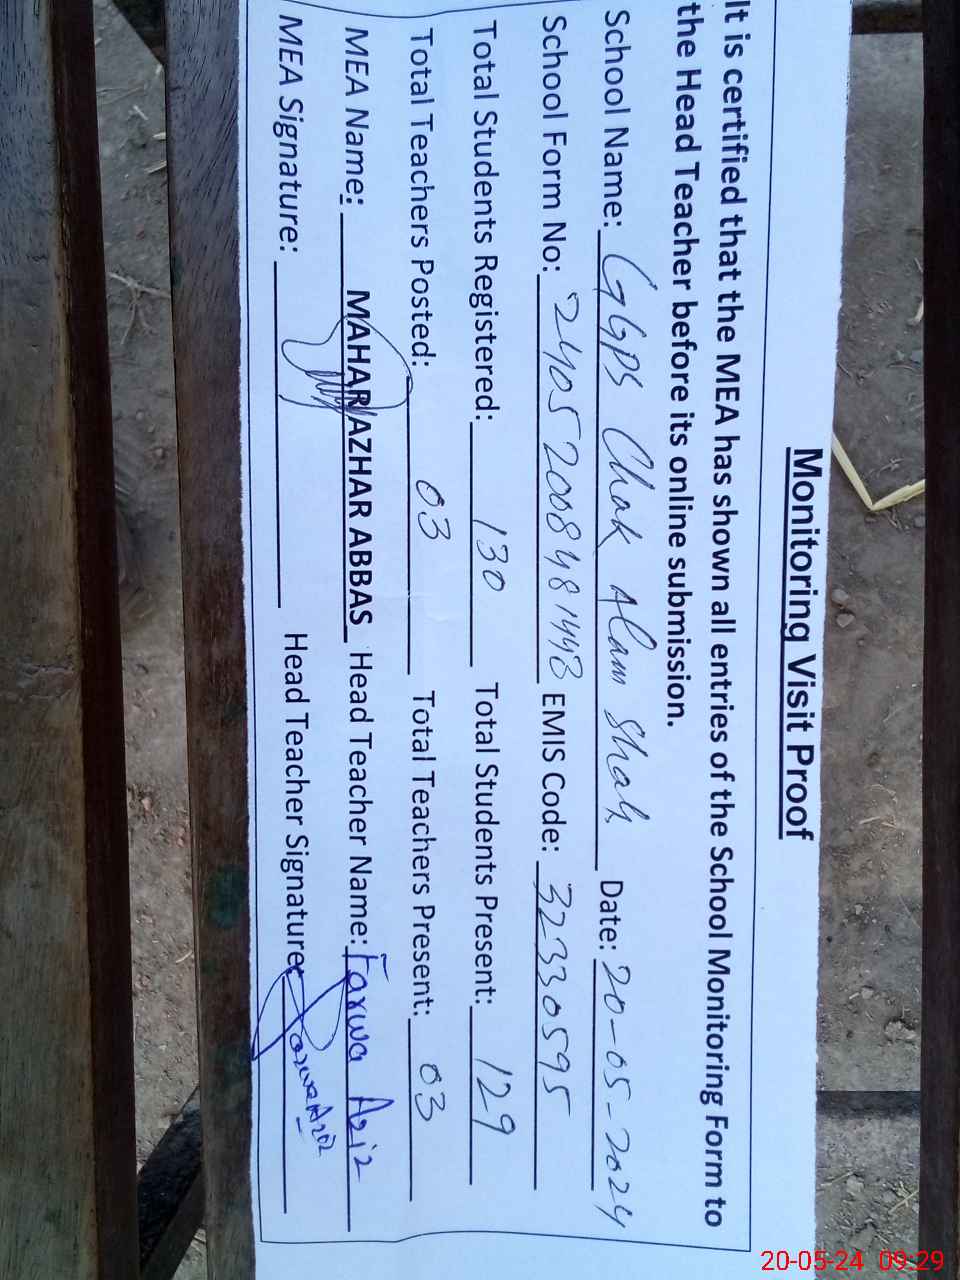 Monitoring Visit Proof
It is certified that the MEA has shown all entries of the School Monitoring Form to
the Head Teacher before its online submission.
School Name: GGPS Chak Alam Shah Date: 20-05-2024
School Form No: 24052008481443 EMIS Code: 32330595
Total Students Registered: 130 Total Students Present: 129
Total Teachers Posted: 03 Total Teachers Present: 03
MEA Name: MAHAR AZHAR ABBAS Head Teacher Name: Farwa Aziz
MEA Signature: Head Teacher Signature: Farwa Aziz
20-05-24 09:29